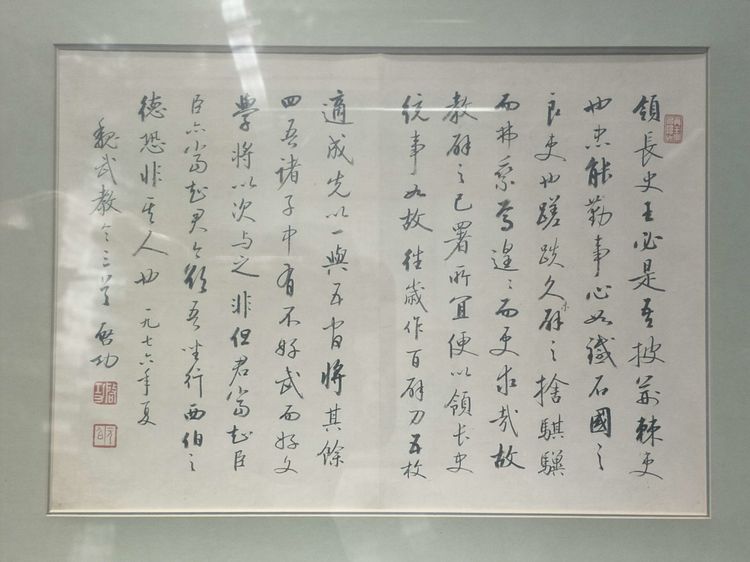 領長史王必是吾披荊棘吏
也忠能勤事心如鐵石國之
良吏也蹉跌久未辟之捨騏驥
而弗乘焉遑遑而更求哉故
教辟之已署所宜便以領長史
統事如故 往歲作百辟刀五枚
適成先以一與五官將其餘
四吾諸子中有不好武而好文
學將以次与之 非但君當知臣
臣亦當知君今欲吾坐行西伯之
德恐非其人也 一九七六年夏
魏武教令三首 啟功
啟功
元白